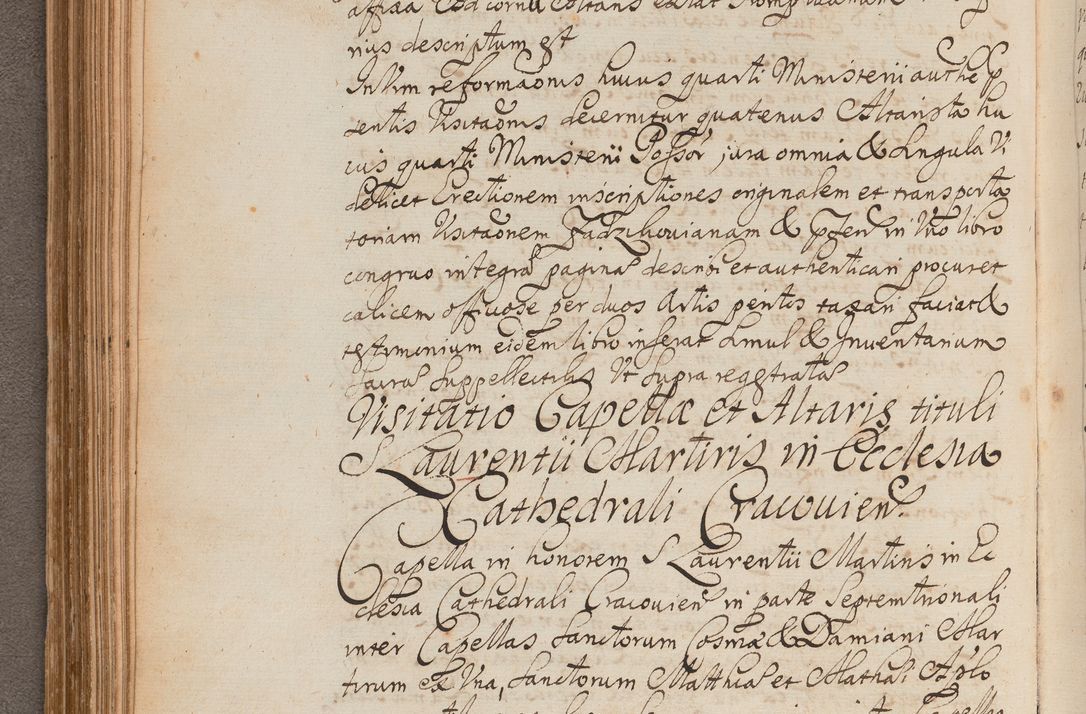 affixa Ad cornu Altaris
rius descriptum est
In Vim reformaõnis huius quarti Ministerii authe
sentis Visitaõnis decernitur quatenus Altarista hu
ius quarti Ministerii Possõr jura omnia & singula Vi
delicet Erectionem inscriptiones originalem et transporta
toriam Visitaõnem Zadzikouianam & in Vno libro
congruo integra pagina describi et authenticari procuret
calicem officiose per duos Artis peritos taxari faciat &
testimonium eidem libro inserat simul & Inuentarium
sacra suppellectilis Vt supra registrata
Visitatio Capellæ et Altaris tituli
S Laurentii Martiris in Ecclesia
Cathedrali Cracouien
Capella in honorem S Laurentii Martiris in Ec
clesia Cathedrali Cracouien in parte Septemtrionali
inter Capellas Sanctorum Cosmæ & Damiani Mar
tirum ex Vna, Sanctorum Matthiæ et Mathæi Aplo